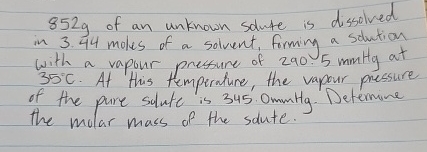 852g of an unknown solute is dissolved
in 3.44 moles of a solvent, forming a solution
with a vapour pressure of 290.5 mmHg at
35°C. At this temperature, the vapour pressure
of the pure solute is 345.0mmHg. Determine
the molar mass of the solute.